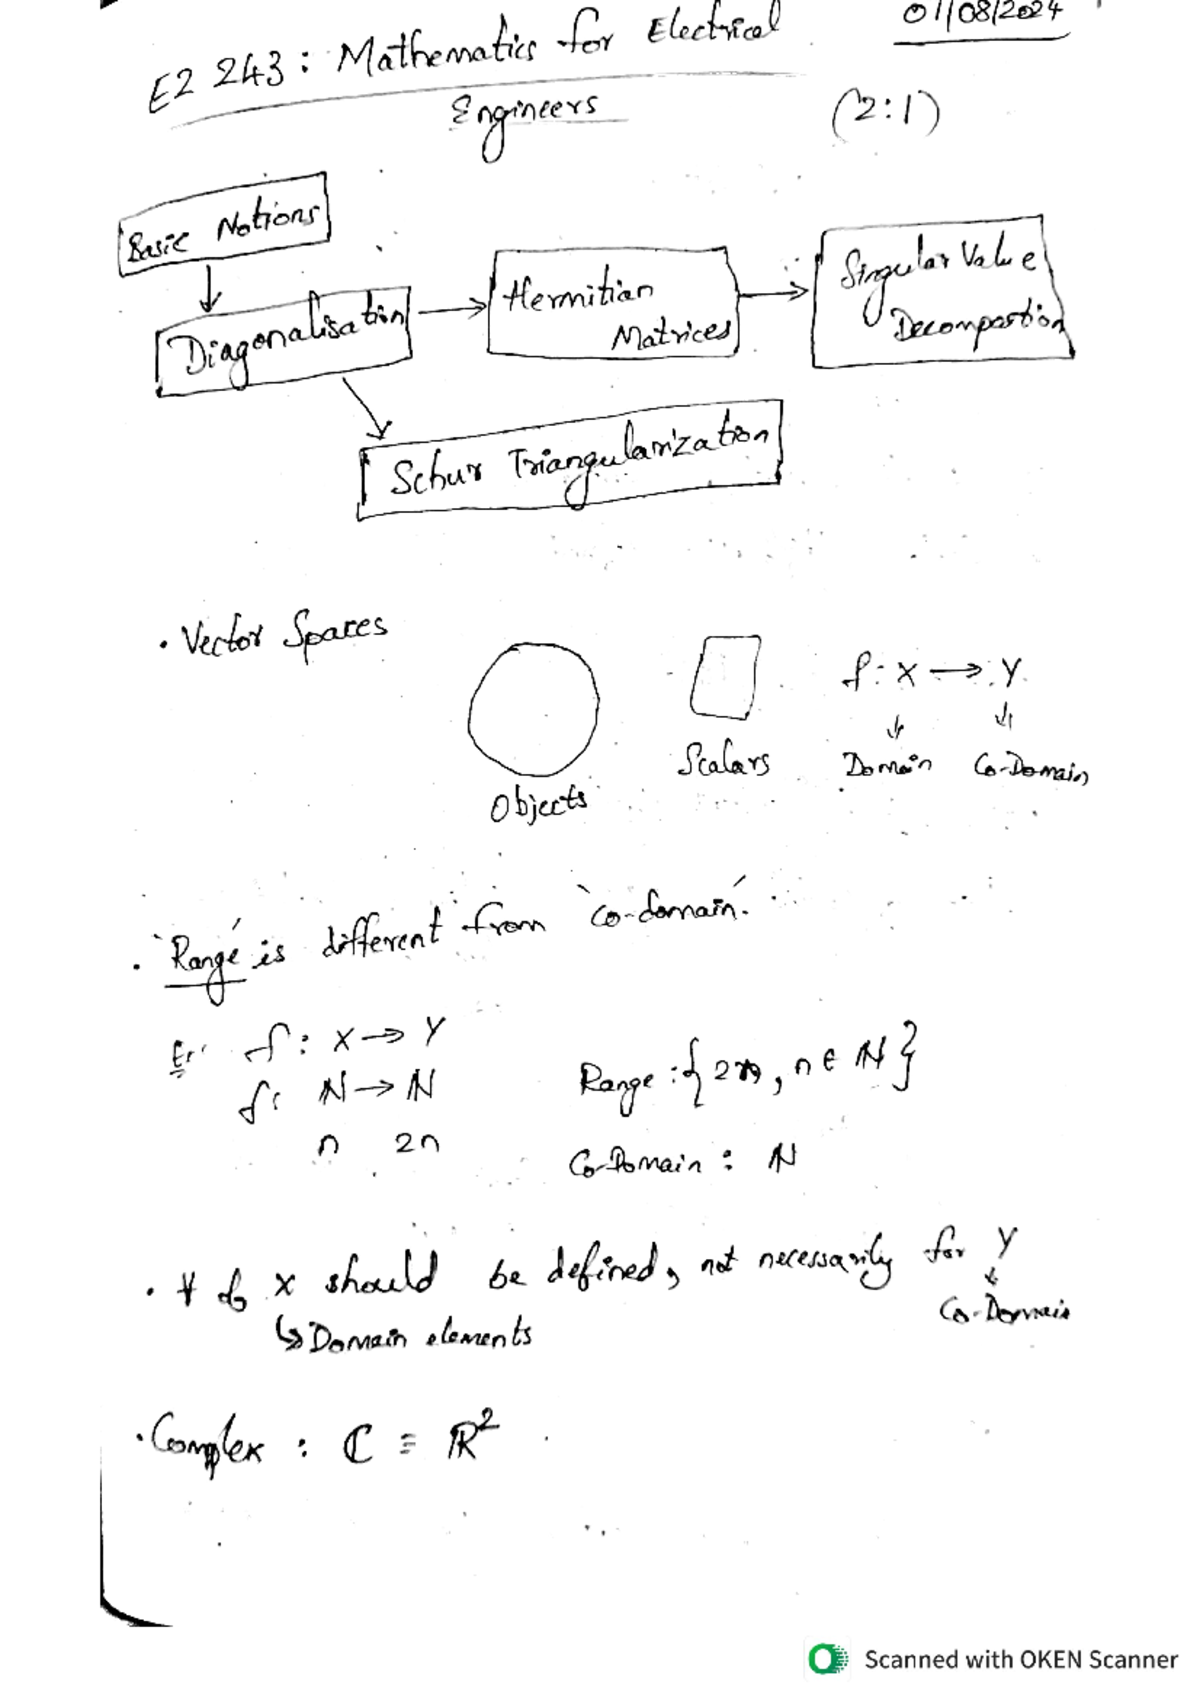 01/08/2024
E2 243 : Mathematics for Electrical
Engineers
(2:1)
Basic Notions
Diagonalisation → Hermitian Matrices → Singular Value Decompostion
Schur Triangularization
• Vector Spaces
Objects
Scalars
f : X → Y
Domain Co-Domain
• 'Range' is different from 'co-domain'.
Ex: f : X → Y
f: ℕ → ℕ
n 2n
Range : {2n, n ∈ ℕ}
Co-Domain : ℕ
• ∀ of X should be defined, not necessarily for Y
↳ Domain elements
Co-Domain
• Complex : ℂ ≡ ℝ²
Scanned with OKEN Scanner